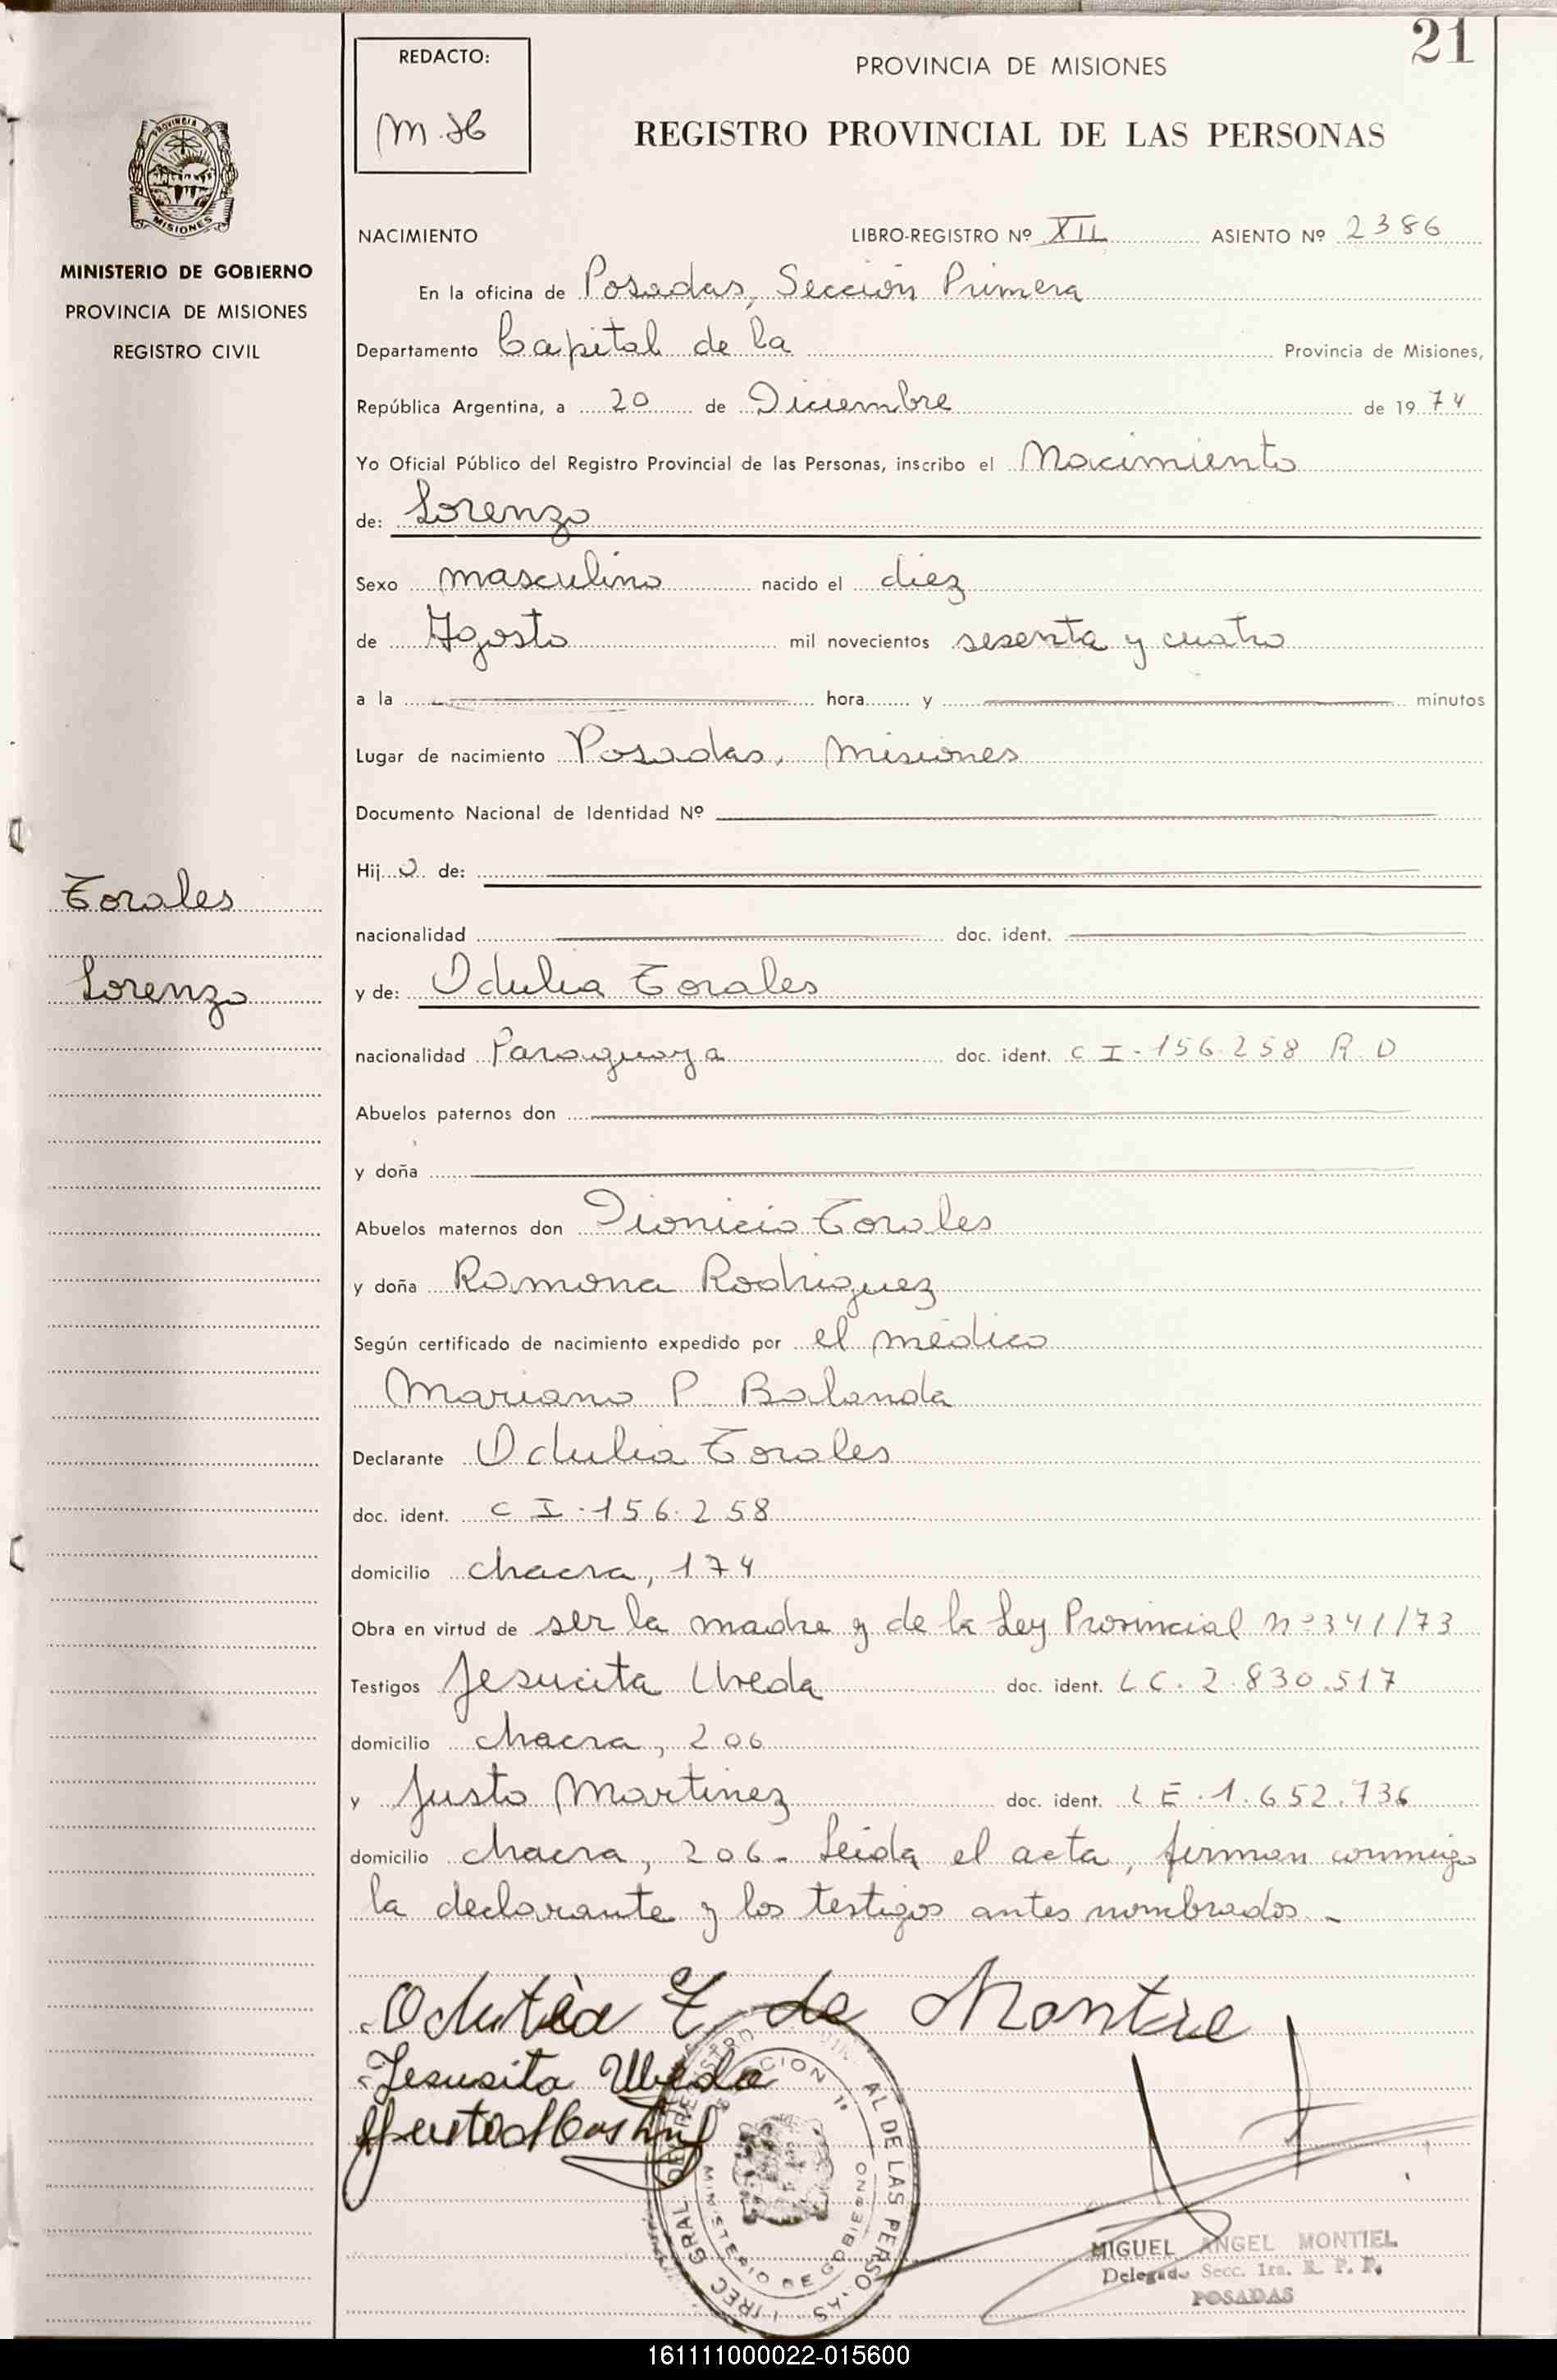 21
REDACTO:
M.H
PROVINCIA DE MISIONES
REGISTRO PROVINCIAL DE LAS PERSONAS
PROVINCIA DE
MISIONES
MINISTERIO DE GOBIERNO
PROVINCIA DE MISIONES
REGISTRO CIVIL
NACIMIENTO LIBRO-REGISTRO Nº XII ASIENTO Nº 2386
En la oficina de Posadas, Sección Primera
Departamento Capital de la Provincia de Misiones,
República Argentina, a 20 de Diciembre de 1974
Yo Oficial Público del Registro Provincial de las Personas, inscribo el Nacimiento
de: Lorenzo
Sexo masculino nacido el diez
de Agosto mil novecientos sesenta y cuatro
a la hora y minutos
Lugar de nacimiento Posadas, Misiones
Documento Nacional de Identidad Nº
Hijo de:
Torales
nacionalidad doc. ident.
Lorenzo
y de: Odulia Torales
nacionalidad Paraguaya doc. ident. C I - 156.258 R. D
Abuelos paternos don
y doña
Abuelos maternos don Dionicio Torales
y doña Ramona Rodriguez
Según certificado de nacimiento expedido por el médico
Mariano P. Balanda
Declarante Odulia Torales
doc. ident. C I - 156.258
domicilio chacra, 174
Obra en virtud de ser la madre y de la Ley Provincial nº 341/73
Testigos Jesucita Ubeda doc. ident. L C. 2.830.517
domicilio chacra, 206
y Justo Martinez doc. ident. L E. 1.652.736
domicilio chacra, 206. Leida el acta, firman conmigo
la declarante y los testigos antes nombrados.-
Odulia T. de Montie
Jesusita Ubeda
Justo
SECCION 1ª
MINISTERIO DE GOBIERNO
MIGUEL ANGEL MONTIEL
Delegado Secc. 1ra. R. P. P.
POSADAS
161111000022-015600